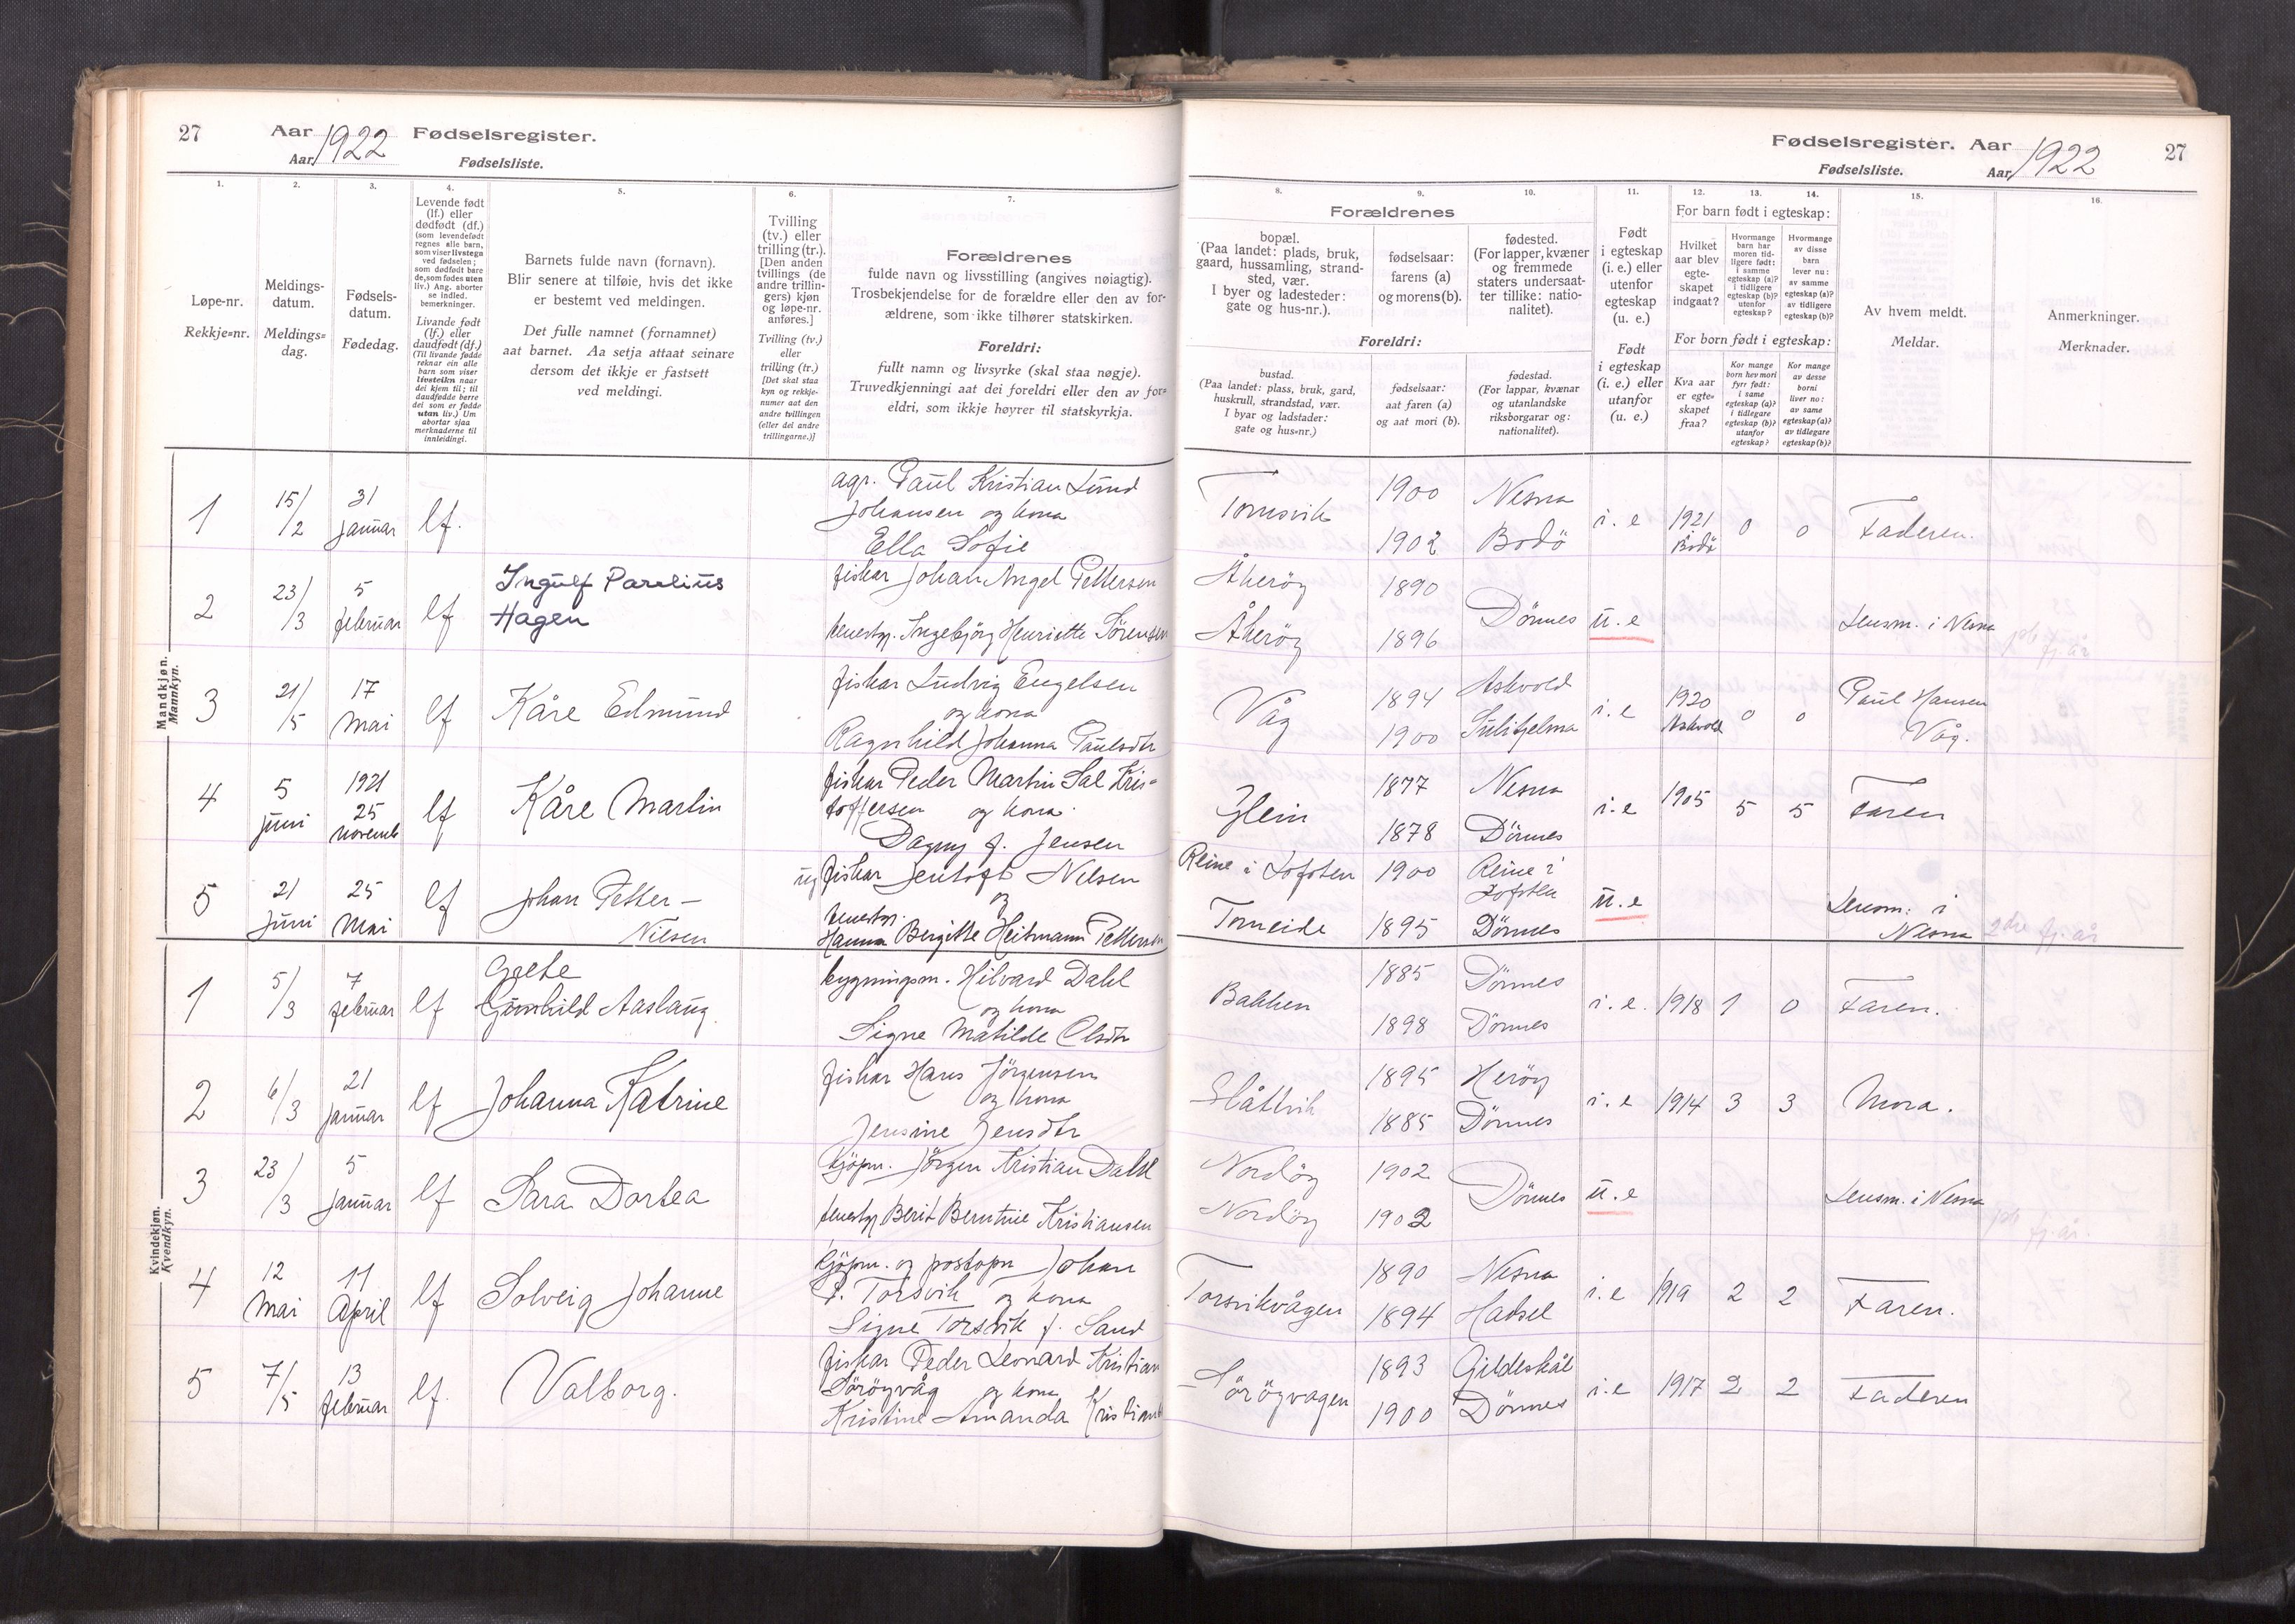 27 Aar 1922 Fødselsregister.
Aar Fødselsliste.
1. 2. 3. 4. 5. 6. 7.
Løpe-nr.
Rekkje=nr.
Meldings-
datum.
Meldings=
dag.
Fødsels-
datum.
Fødedag.
Levende født
(lf.) eller
dødfødt (df.)
(som levendefødt
regnes alle barn,
som viser livstegn
ved fødselen;
som dødfødt bare
de, som fødes uten
liv.) Ang. aborter
se indled.
bemerkninger.
Livande født
(lf.) eller
daudfødt (df.)
(Til livande fødde
reknar ein alle
barn som viser
livsteikn naar
dei kjem til; til
daudfødde berre
dei som er fødde
utan liv.) Um
abortar sjaa
merknaderne til
innleidingi.
Barnets fulde navn (fornavn).
Blir senere at tilføie, hvis det ikke
er bestemt ved meldingen.
Det fulle namnet (fornamnet)
aat barnet. Aa setja attaat seinare
dersom det ikkje er fastsett
ved meldingi.
Tvilling
(tv.) eller
trilling (tr.).
[Den anden
tvillings (de
andre trillin-
gers) kjøn
og løpe-nr.
anføres.]
Tvilling (tv.)
eller
trilling (tr.)
[Det skal staa
kyn og rekkje-
numer aat den
andre tvillingen
(eller dei andre
trillingarne.)]
Forældrenes
fulde navn og livsstilling (angives nøiagtig).
Trosbekjendelse for de forældre eller den av for-
ældrene, som ikke tilhører statskirken.
Foreldri:
fullt namn og livsyrke (skal staa nøgje).
Truvedkjenningi aat dei foreldri eller den av for-
eldri, som ikkje høyrer til statskyrkja.
Mandkjøn.
Mannkyn.
1 15/2 31 januar lf.
agr. Paul Kristian Lund
Johansen og kona
Ella Sofie
2 23/3 5 februar lf Ingulf Parelius
Hagen
fiskar Johan Angel Pettersen
tenestgj. Ingebjörg Henriette Sörensen
3 21/5 17 Mai lf Kåre Edmund
fiskar Ludvig Engelsen
og kona
Ragnhild Johanna Paulsdtr
4 5 juni 1921 25 novemb lf Kåre Martin
fiskar Peder Martin Sal Kris=
toffersen og kona
Dagny f. Jensen
5 21 Juni 25 Mai lf Johan Petter –
Nilsen
ug fiskar Jentoft Nilsen
og
tenestgj.
Hanna Bergitte Heitmann Pettersen
Kvindekjøn.
Kvendkyn.
1 5/3 7 februar lf Grete
Gunhild Aaslaug.
bygningsm. Hilvard Dahl
og kona
Signe Matilde Olsdtr
2 6/3 21 januar lf Johanna Katrine
fiskar Hans Jörgensen
og kona
Jensine Jensdtr
3 23/3 5 januar lf Sara Dortea
kjöpm. Jörgen Kristian Dahl
tenestgj Berit Berntine Kristiansen
4 12 Mai 11 April lf Solveig Johanne
kjöpm. og postopn Johan
P. Torsvik og kona
Signe Torsvik f. Sand
5 7/5 13 februar lf. Valborg.
fiskar Peder Leonard Kristian
Söröyvåg og kona
Kristine Amanda
Fødselsregister. Aar 1922 27
Fødselsliste. Aar
8. 9. 10. 11. 12. 13. 14. 15. 16.
Forældrenes
bopæl.
(Paa landet: plads, bruk,
gaard, hussamling, strand-
sted, vær.
I byer og ladesteder:
gate og hus-nr.).
fødselsaar:
farens (a)
og morens (b).
fødested.
(For lapper, kvæner
og fremmede
staters undersaat-
ter tillike: natio-
nalitet).
Foreldri:
bustad.
(Paa landet: plass, bruk, gard,
huskrull, strandstad, vær.
I byar og ladstader:
gate og hus=nr.)
fødselsaar:
aat faren (a)
og aat mori (b).
fødestad.
(For lappar, kvænar
og utanlandske
riksborgarar og:
nationalitet).
Født
i egteskap
(i. e.) eller
utenfor
egteskap
(u. e.)
Født
i egteskap
(i. e.) eller
utanfor
(u. e.)
For barn født i egteskap:
Hvilket
aar blev
egte-
skapet
indgaat?
Hvormange
barn har
moren tid-
ligere født:
i samme
egteskap (a)?
i tidligere
egteskap (b)?
utenfor
egteskap?
Hvormange
av disse
barn
lever nu:
av samme
egteskap (a)?
av tidligere
egteskap (b)?
For born født i egteskap:
Kva aar
er egte=
skapet
fraa?
Kor mange
born hev mori
fyrr født:
i same
egteskap (a)?
i tidlegare
egteskap (b)?
utanfor
egteskap?
Kor mange
av desse
borni
liver no:
av same
egteskap (a)?
av tidlegare
egteskap (b)?
Av hvem meldt.
Meldar.
Anmerkninger.
Merknader.
1900 Nesna
1902 Bodö
i.e 1921 Bodö 0 0 Faderen.
Åkeröy 1890
Åkeröy 1896
Dönnes u.e Lensm. i Nesna
Våg 1894 Askvold
1900 Sulitjelma
i.e 1920 Askvold 0 0 Paul Hansen
Våg.
Glein 1877 Nesna
1878 Dönnes
i.e 1905 5 5 Faren
Reine i Lofoten 1900 Reine i
Lofoten
Torneide 1895 Dönnes
u.e Lensm. i
Nesna 2dre fj. år
Bakken 1885 Dönnes
1898 Dönnes
i.e. 1918 1 0 Faren.
Slåttvik 1895 Heröy
1885 Dönnes
i.e 1914 3 3 Mora.
Nordöy 1902
Nordöy 1902
Dönnes u.e Lensm. i Nesna
fj. år.
Torsvikvågen 1890 Nesna
1894 Hadsel
i.e 1919 2 2 Faren.
Söröyvagen 1893 Gildeskål
1900 Dönnes
i.e 1917 2 2 Faderen